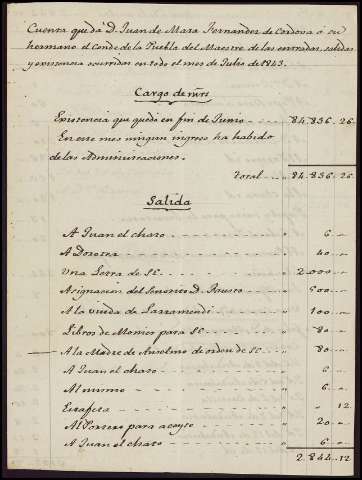 Cuenta que da Dn. Juan de Mata Fernandez de Cordova á su
hermano el Conde de la Puebla del Maestre de las entradas, salidas
y existencia ocurridas en todo el mes de Julio de 1843.
Cargo de mrs
Existencia que quedó en fin de Junio - - - - 84.836. 26.
En este mes ningun ingreso ha habido
de las Administraciones.
Total - - " 84.836. 26.
Salida
A Juan el chato - - - - " 6 "
A Dorotea - - - - " 40 "
Una Letra de SE. - - - - " 2.000 "
Asignacion del Señorito D. - - - - " 500 "
A la viuda de Larramendi - - - - " 100 "
Libros de para SE - - - - " 80 "
A la Madre de Anselmo de orden de SE - - " 80 "
A Juan el chato - - - - " 6 "
Al mismo - - - - " 6 "
Estafeta - - - - " " 12
Al Portero para aceyte - - - - " 20 "
A Juan el chato - - - - " 6 "
2.844. 12